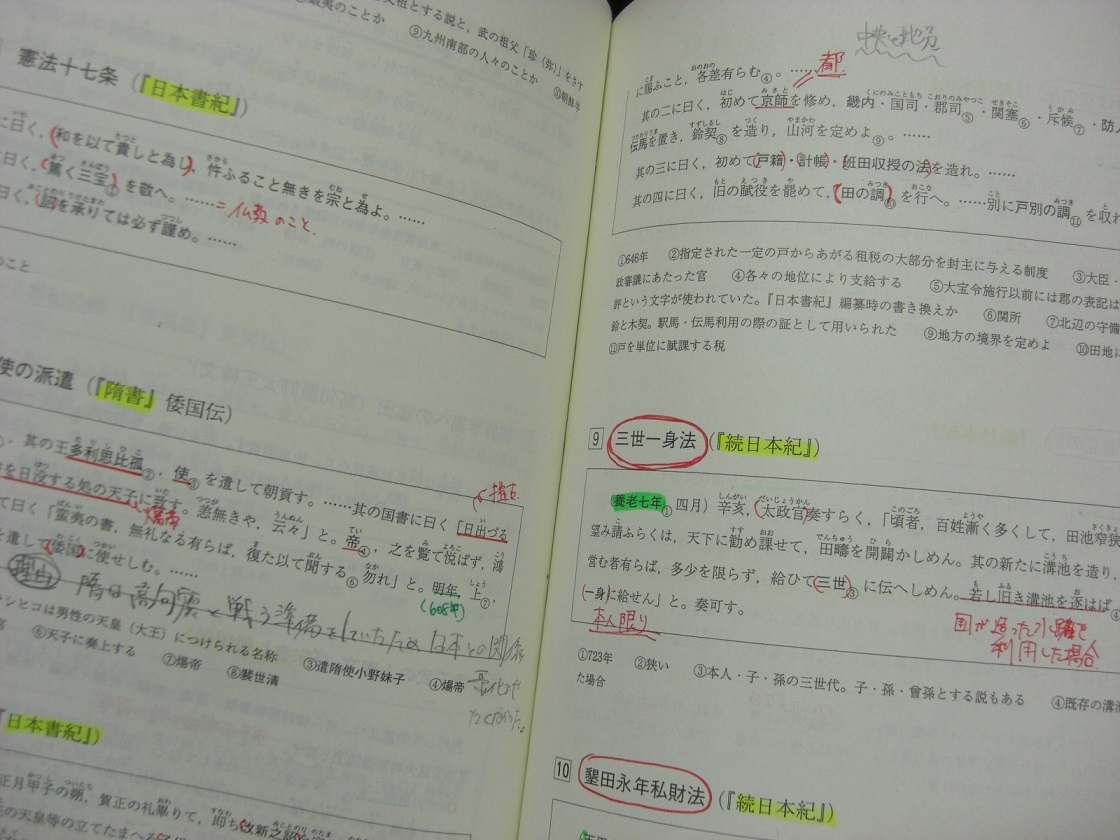 祖とする説と，武の祖父「珍（弥）」をさす
のことか　⑨九州南部の人々のことか　⑩朝鮮半
憲法十七条（『日本書紀』）
に曰く，和を以て貴しと為し，忤ふること無きを宗と為よ。……
曰く，篤く三宝①を敬へ。……=仏教のこと.
曰く，詔を承りては必ず謹め。……
のこと
使の派遣（『隋書』倭国伝）
，其の王多利思比孤②，使③を遣して朝貢す。……其の国書に曰く「日出づる
を日没する処の天子に致す。恙無きや，云々」と。帝④，之を覧て悦ばず，鴻
煬帝
て曰く「蛮夷の書，無礼なる有らば，復た以て聞する⑥勿れ」と。明年，上⑦，
を遣して倭国に使せしむ。……
(608年)
理由 隋は高句麗と戦う準備をしていたため 日本との関係
シヒコは男性の天皇（大王）につけられる名称　③遣隋使小野妹子　④煬帝
⑥天子に奏上する　⑦煬帝　⑧裴世清
『日本書紀』）
正月甲子の朔，賀正の礼畢りて，即ち改新之詔を
の天皇等の立てたまへる
中央と地分
に届ふこと，各差有らむ④。……
都
其の二に曰く，初めて京師を修め，畿内・国司・郡司⑤・関塞⑥・斥候⑦・防人
伝馬を置き，鈴契⑧を造り，山河を定めよ⑨。……
其の三に曰く，初めて戸籍・計帳・班田収授の法を造れ。……
其の四に曰く，旧の賦役を罷めて，田の調⑩を行へ。……別に戸別の調⑪を収れ
①646年　②指定された一定の戸からあがる租税の大部分を封主に与える制度　③大臣・
政審議にあたった官　④各々の地位により支給する　⑤大宝令施行以前には郡の表記は
評という文字が使われていた。『日本書紀』編纂時の書き換えか　⑥関所　⑦北辺の守備
鈴と木契。駅馬・伝馬利用の際の証として用いられた　⑨地方の境界を定めよ　⑩田地に
⑪戸を単位に賦課する税
9 三世一身法（『続日本紀』）
養老七年①四月）辛亥，太政官奏すらく，「頃者，百姓漸く多くして，田池窄狭
望み請ふらくは，天下に勧め課せて，田疇を開闢かしめん。其の新たに溝池を造り，
営む者有らば，多少を限らず，給ひて三世③に伝へしめん。若し旧き溝池を逐はば④
一身に給せん」と。奏可す。
本人限り
国が造った水路を
利用した場合
①723年　②狭い　③本人・子・孫の三世代。子・孫・曾孫とする説もある　④既存の溝池
た場合
10 墾田永年私財法（『続日本紀』）